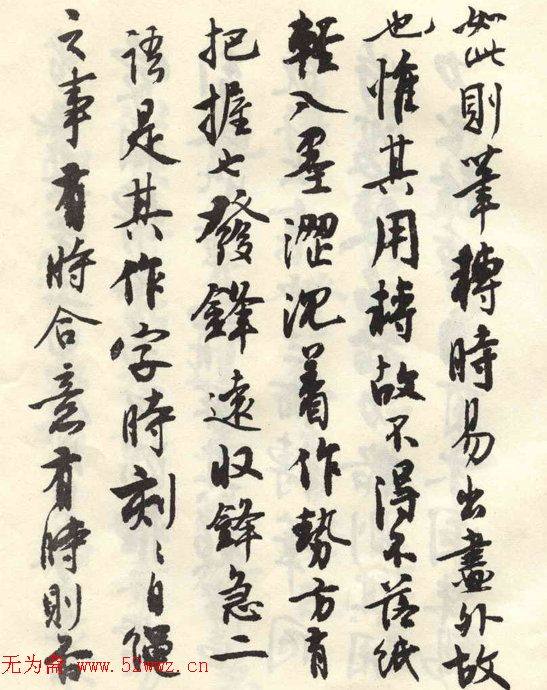 如此則筆轉時易出畫外故
也惟其用轉故不得不落紙
輕入墨澀沉着作勢方有
把握七發鋒遠收鋒急二
語是其作字時刻〻自繩
之事有時合意有時則否
无为斋 www.52wwz.cn